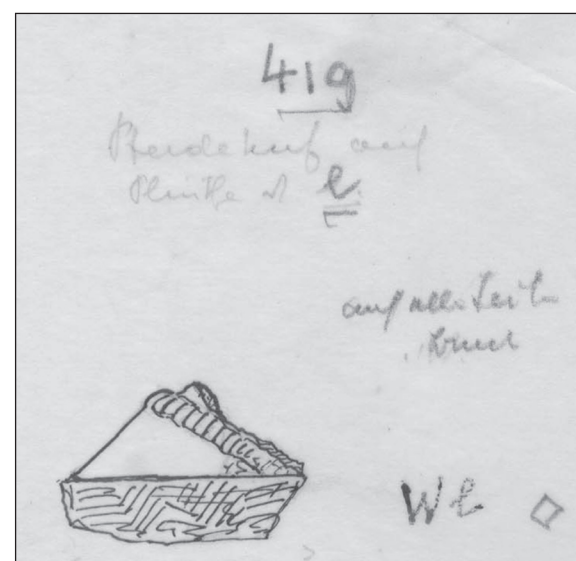 41g
Pferdehuf auf
Plinthe
e
auf allen Seiten
Bruch